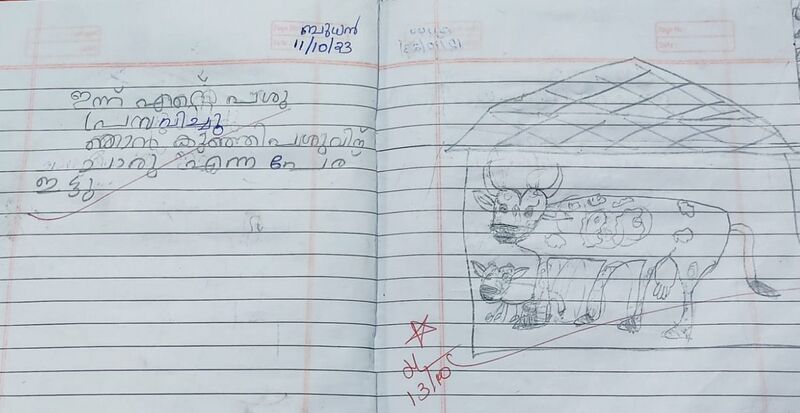 ബുധൻ
11/10/23
ഇന്ന് എന്റെ പശു
പ്രസവിച്ചു
ഞാൻ കുഞ്ഞിപശുവിന്
ചാരു എന്ന പേര
ഇട്ടു
13/10